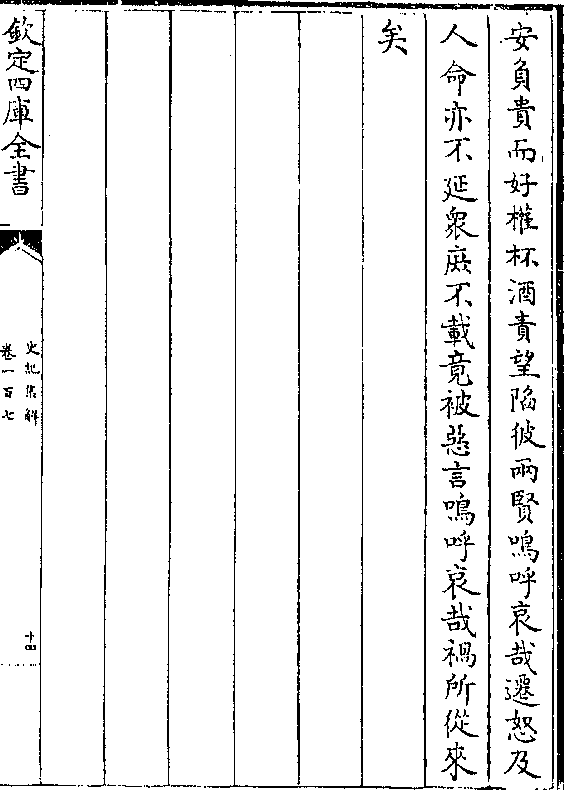 安負貴而好權杯酒責望陷彼兩賢嗚呼哀哉遷怒及
人命亦不延衆庶不載竟被惡言嗚呼哀哉禍所從來
矣
欽定四庫全書
史記集解
卷一百七
十四